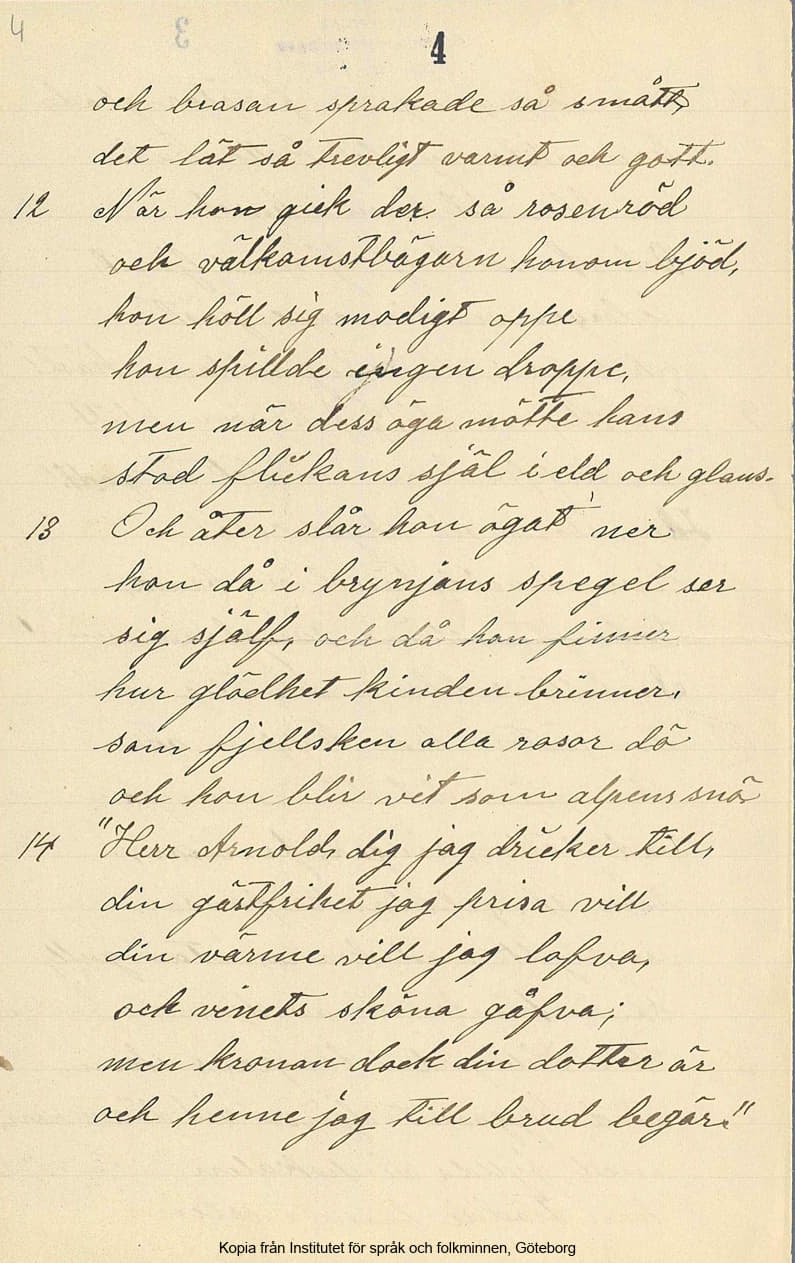 4
4
och brasan sprakade så smått,
det lät så trevligt varmt och gott.
12 När hon gick der så rosenröd
och välkomstbägarn honom bjöd,
hon höll sig modigt oppe
hon spillde ingen droppe,
men när dess öga mötte hans
stod flickans själ i eld och glans.
13 Och åter slår hon ögat ner
hon då i brynjans spegel ser
sig själf, och då hon finner
hur glödhet kinden brinner,
som fjellsken alla rosor dö
och hon blir vit som alpens snö
14 "Herr Arnold, dig jag dricker till,
din gästfrihet jag prisa vill
din värme vill jag lofva,
och vinets sköna gåfva;
men kronan dock din dotter är
och henne jag till brud begär."
Kopia från Institutet för språk och folkminnen, Göteborg